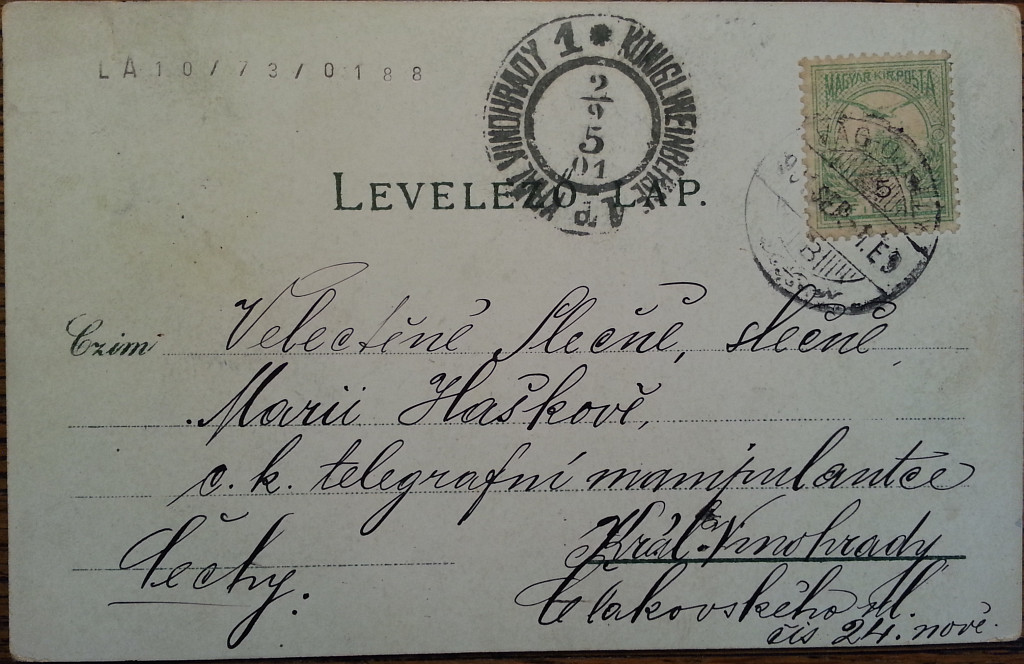 LA10/73/0188
1 * KÖNIGL. WEINBERGE 1 KRÁL. VINOHRADY
2
9
5
01
MAGYAR KIR. POSTA
LEVELEZŐ LAP.
Czim
Velectěné Slečně, slečně
Marii Haškově,
c. k. telegrafní manipulantce
Král. Vinohrady
Čechy.
Čelakovského ul.
čís 24. nově.